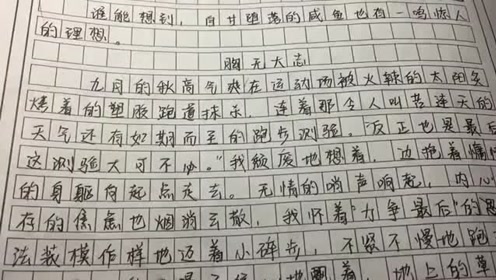 谁能想到，自甘堕落的咸鱼也有一鸣惊人
的理想。
胸无大志
九月的秋高气爽在运动场被火辣的太阳炙
烤着的塑胶跑道抹杀，连着那令人叫苦连天的
天气还有如期而至的跑步测验。"反正也是最后
这测验大可不必。"我颓废地想着，边拖着慵
的身躯向起点走去。无情的哨声响起，内心
存的焦虑也烟消云散，我怀着"力争最后"的
法装模作样地迈着小碎步，不紧不慢地跑
地 上的草